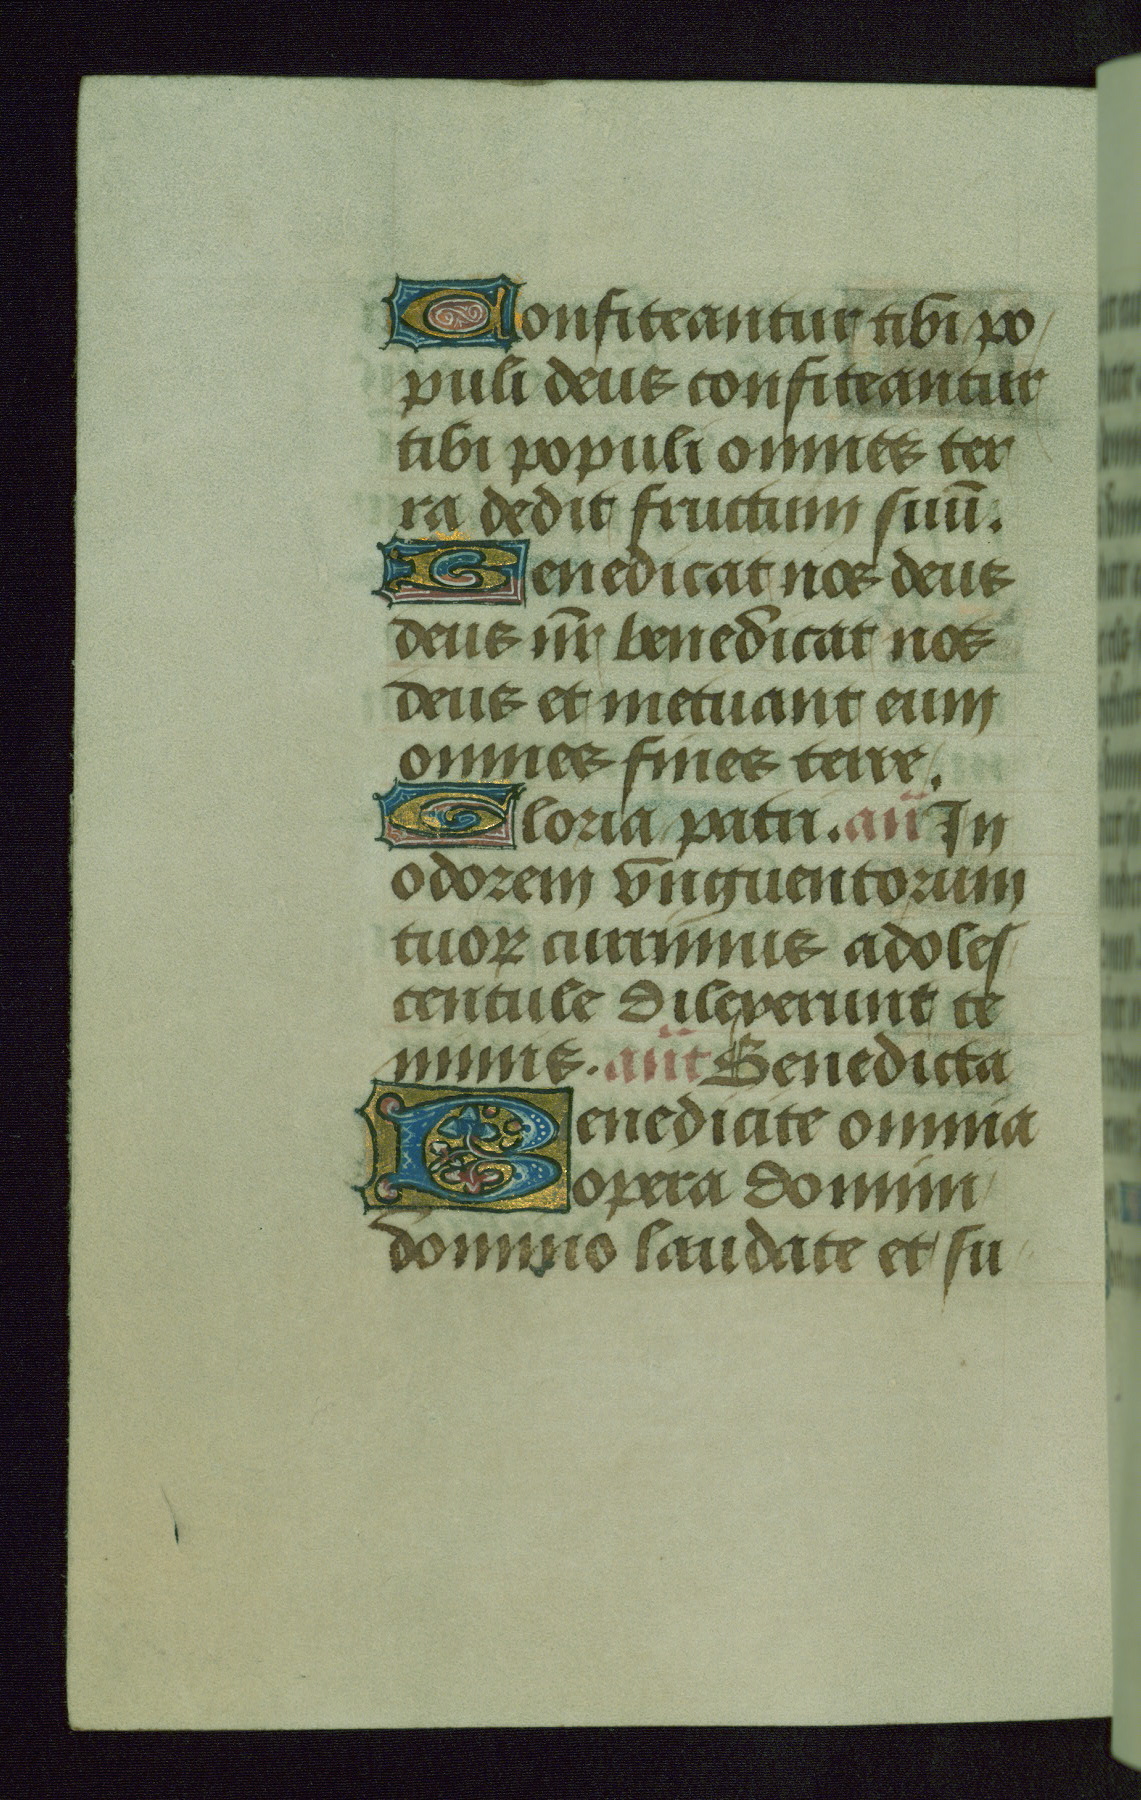 Confiteantur tibi po
puli deus confiteantur
tibi populi omnes ter
ra dedit fructum suū.
Benedicat nos deus
deus nr̄ benedicat nos
deus et metuant eum
omnes fines terre.
Gloria patri. añ In
odorem vnguentorum
tuoꝝ currimus adoles
centule dilexerunt te
nimis. añt Benedicta
Benedicite omnia
opera domini
domino laudate et su